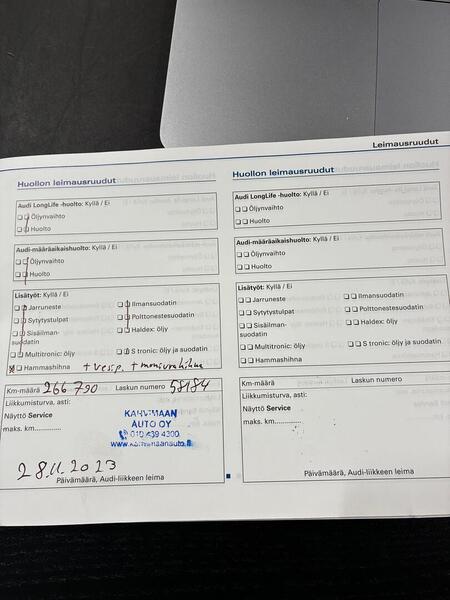 Leimausruudut
Huollon leimausruudut
Audi LongLife -huolto: Kyllä / Ei
Öljynvaihto
Huolto
Audi-määräaikaishuolto: Kyllä / Ei
Öljynvaihto
Huolto
Lisätyöt: Kyllä / Ei
Jarruneste
Ilmansuodatin
Sytytystulpat
Polttonestesuodatin
Sisäilman-
suodatin
Haldex: öljy
Multitronic: öljy
S tronic: öljy ja suodatin
Hammashihna
+ vesip. + moniurahihna
Km-määrä 266 790 Laskun numero 58184
Liikkumisturva, asti:
Näyttö Service
maks. km.............
KAHVIMAAN
AUTO OY
010 439 4300
www.kahvimaanauto.fi
28.11.2023
Päivämäärä, Audi-liikkeen leima
Huollon leimausruudut
Audi LongLife -huolto: Kyllä / Ei
Öljynvaihto
Huolto
Audi-määräaikaishuolto: Kyllä / Ei
Öljynvaihto
Huolto
Lisätyöt: Kyllä / Ei
Jarruneste
Ilmansuodatin
Sytytystulpat
Polttonestesuodatin
Sisäilman-
suodatin
Haldex: öljy
Multitronic: öljy
S tronic: öljy ja suodatin
Hammashihna
Km-määrä Laskun numero
Liikkumisturva, asti:
Näyttö Service
maks. km.............
Päivämäärä, Audi-liikkeen leima